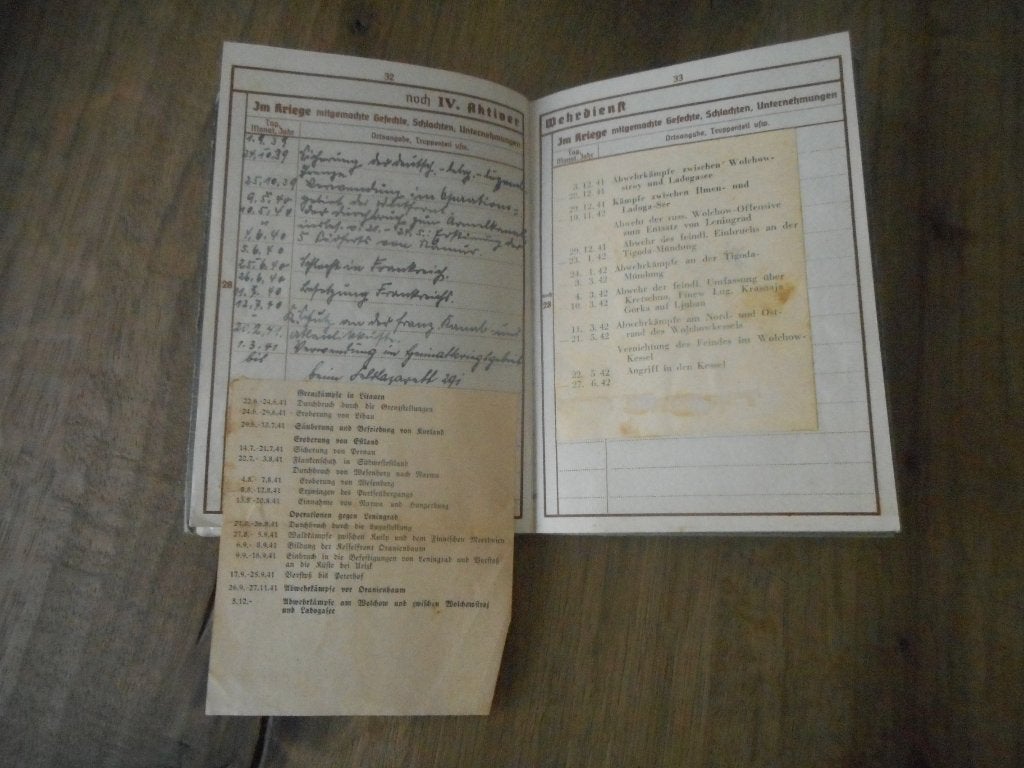 32
noch IV. Aktiver
Im Kriege mitgemachte Gefechte, Schlachten, Unternehmungen
Tag, Monat, Jahr
Ortsangabe, Truppenteil usw.
1.9.39
24.10.39 Sicherung der deutsch.-belg.-luxemb.
Grenze
25.10.39 Verwendung im Operations-
9.5.40 gebiet der Westfront.
10.5.40 Der Durchbruch zum Armelkanal
4.6.40
5 südostw. von Namur
5.6.40
25.6.40 Schlacht in Frankreich.
26.6.40
Besetzung Frankreichs.
12.7.40
Schutz an der franz. Kanal- und
1.3.41 Verwendung im Heimatkriegsgebiet
bis
beim Feldlazarett 291
28
Grenzkämpfe in Litauen
22.6.-24.6.41 Durchbruch durch die Grenzstellungen
24.6.-29.6.41 Eroberung von Libau
29.6.-13.7.41 Säuberung und Befriedung von Kurland
Eroberung von Estland
14.7.-21.7.41 Sicherung von Pernau
20.7.- 3.8.41 Flankenschutz in Südwestestland
Durchbruch von Wesenberg nach Narwa
4.8.- 7.8.41 Eroberung von Wesenberg
8.8.-12.8.41 Erzwingen des Purtseübergangs
13.8.-20.8.41 Einnahme von Narwa und Hungerburg
Operationen gegen Leningrad
21.8.-26.8.41 Durchbruch durch die Lugastellung
27.8.- 5.9.41 Waldkämpfe zwischen Kotly und dem Finnischen Meerbusen
6.9.- 8.9.41 Bildung der Kesselfront Oranienbaum
9.9.-16.9.41 Einbruch in die Befestigungen von Leningrad und Vorstoß
an die Küste bei Urizk
17.9.-25.9.41 Vorstoß bis Peterhof
26.9.-27.11.41 Abwehrkämpfe vor Oranienbaum
5.12.- Abwehrkämpfe am Wolchow und zwischen Wolchowstroj
und Ladogasee
33
Wehrdienst
Im Kriege mitgemachte Gefechte, Schlachten, Unternehmungen
Tag, Monat, Jahr
Ortsangabe, Truppenteil usw.
3. 12. 41 Abwehrkämpfe zwischen Wolchow-
28. 12. 41 stroy und Ladogasee
29. 12. 41 Kämpfe zwischen Ilmen- und
19. 11. 42 Ladoga-See
Abwehr der russ. Wolchow-Offensive
zum Entsatz von Leningrad
29. 12. 41 Abwehr des feindl. Einbruchs an der
23. 1. 42 Tigoda-Mündung
24. 1. 42 Abwehrkämpfe an der Tigoda-
3. 3. 42 Mündung
4. 3. 42 Abwehr der feindl. Umfassung über
10. 3. 42 Kretschno, Finew Lug, Krasnaja
Gorka auf Ljuban
11. 3. 42 Abwehrkämpfe am Nord- und Ost-
21. 5. 42 rand des Wolchowkessels
Vernichtung des Feindes im Wolchow-
Kessel
22. 5 42 Angriff in den Kessel
27. 6. 42
noch
28